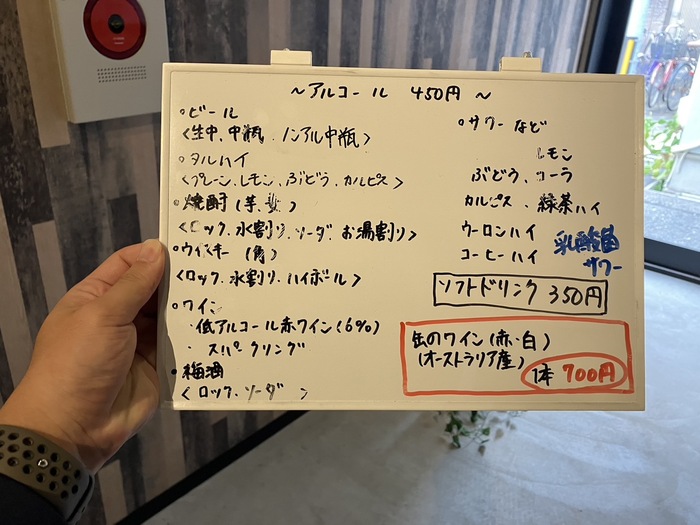 ~アルコール 450円~
○ビール
<生中、中瓶、ノンアル中瓶>
○タルハイ
<プレーン、レモン、ぶどう、カルピス>
○焼酎(芋、麦)
<ロック、水割り、ソーダ、お湯割り>
○ウィスキー(角)
<ロック、水割り、ハイボール>
○ワイン
・低アルコール赤ワイン(6%)
・スパークリング
・梅酒
<ロック、ソーダ >
○サワーなど
レモン
ぶどう、コーラ
カルピス、緑茶ハイ
ウーロンハイ
コーヒーハイ
乳酸菌
サワー
ソフトドリンク 350円
缶のワイン(赤・白)
(オーストラリア産)
1本 700円